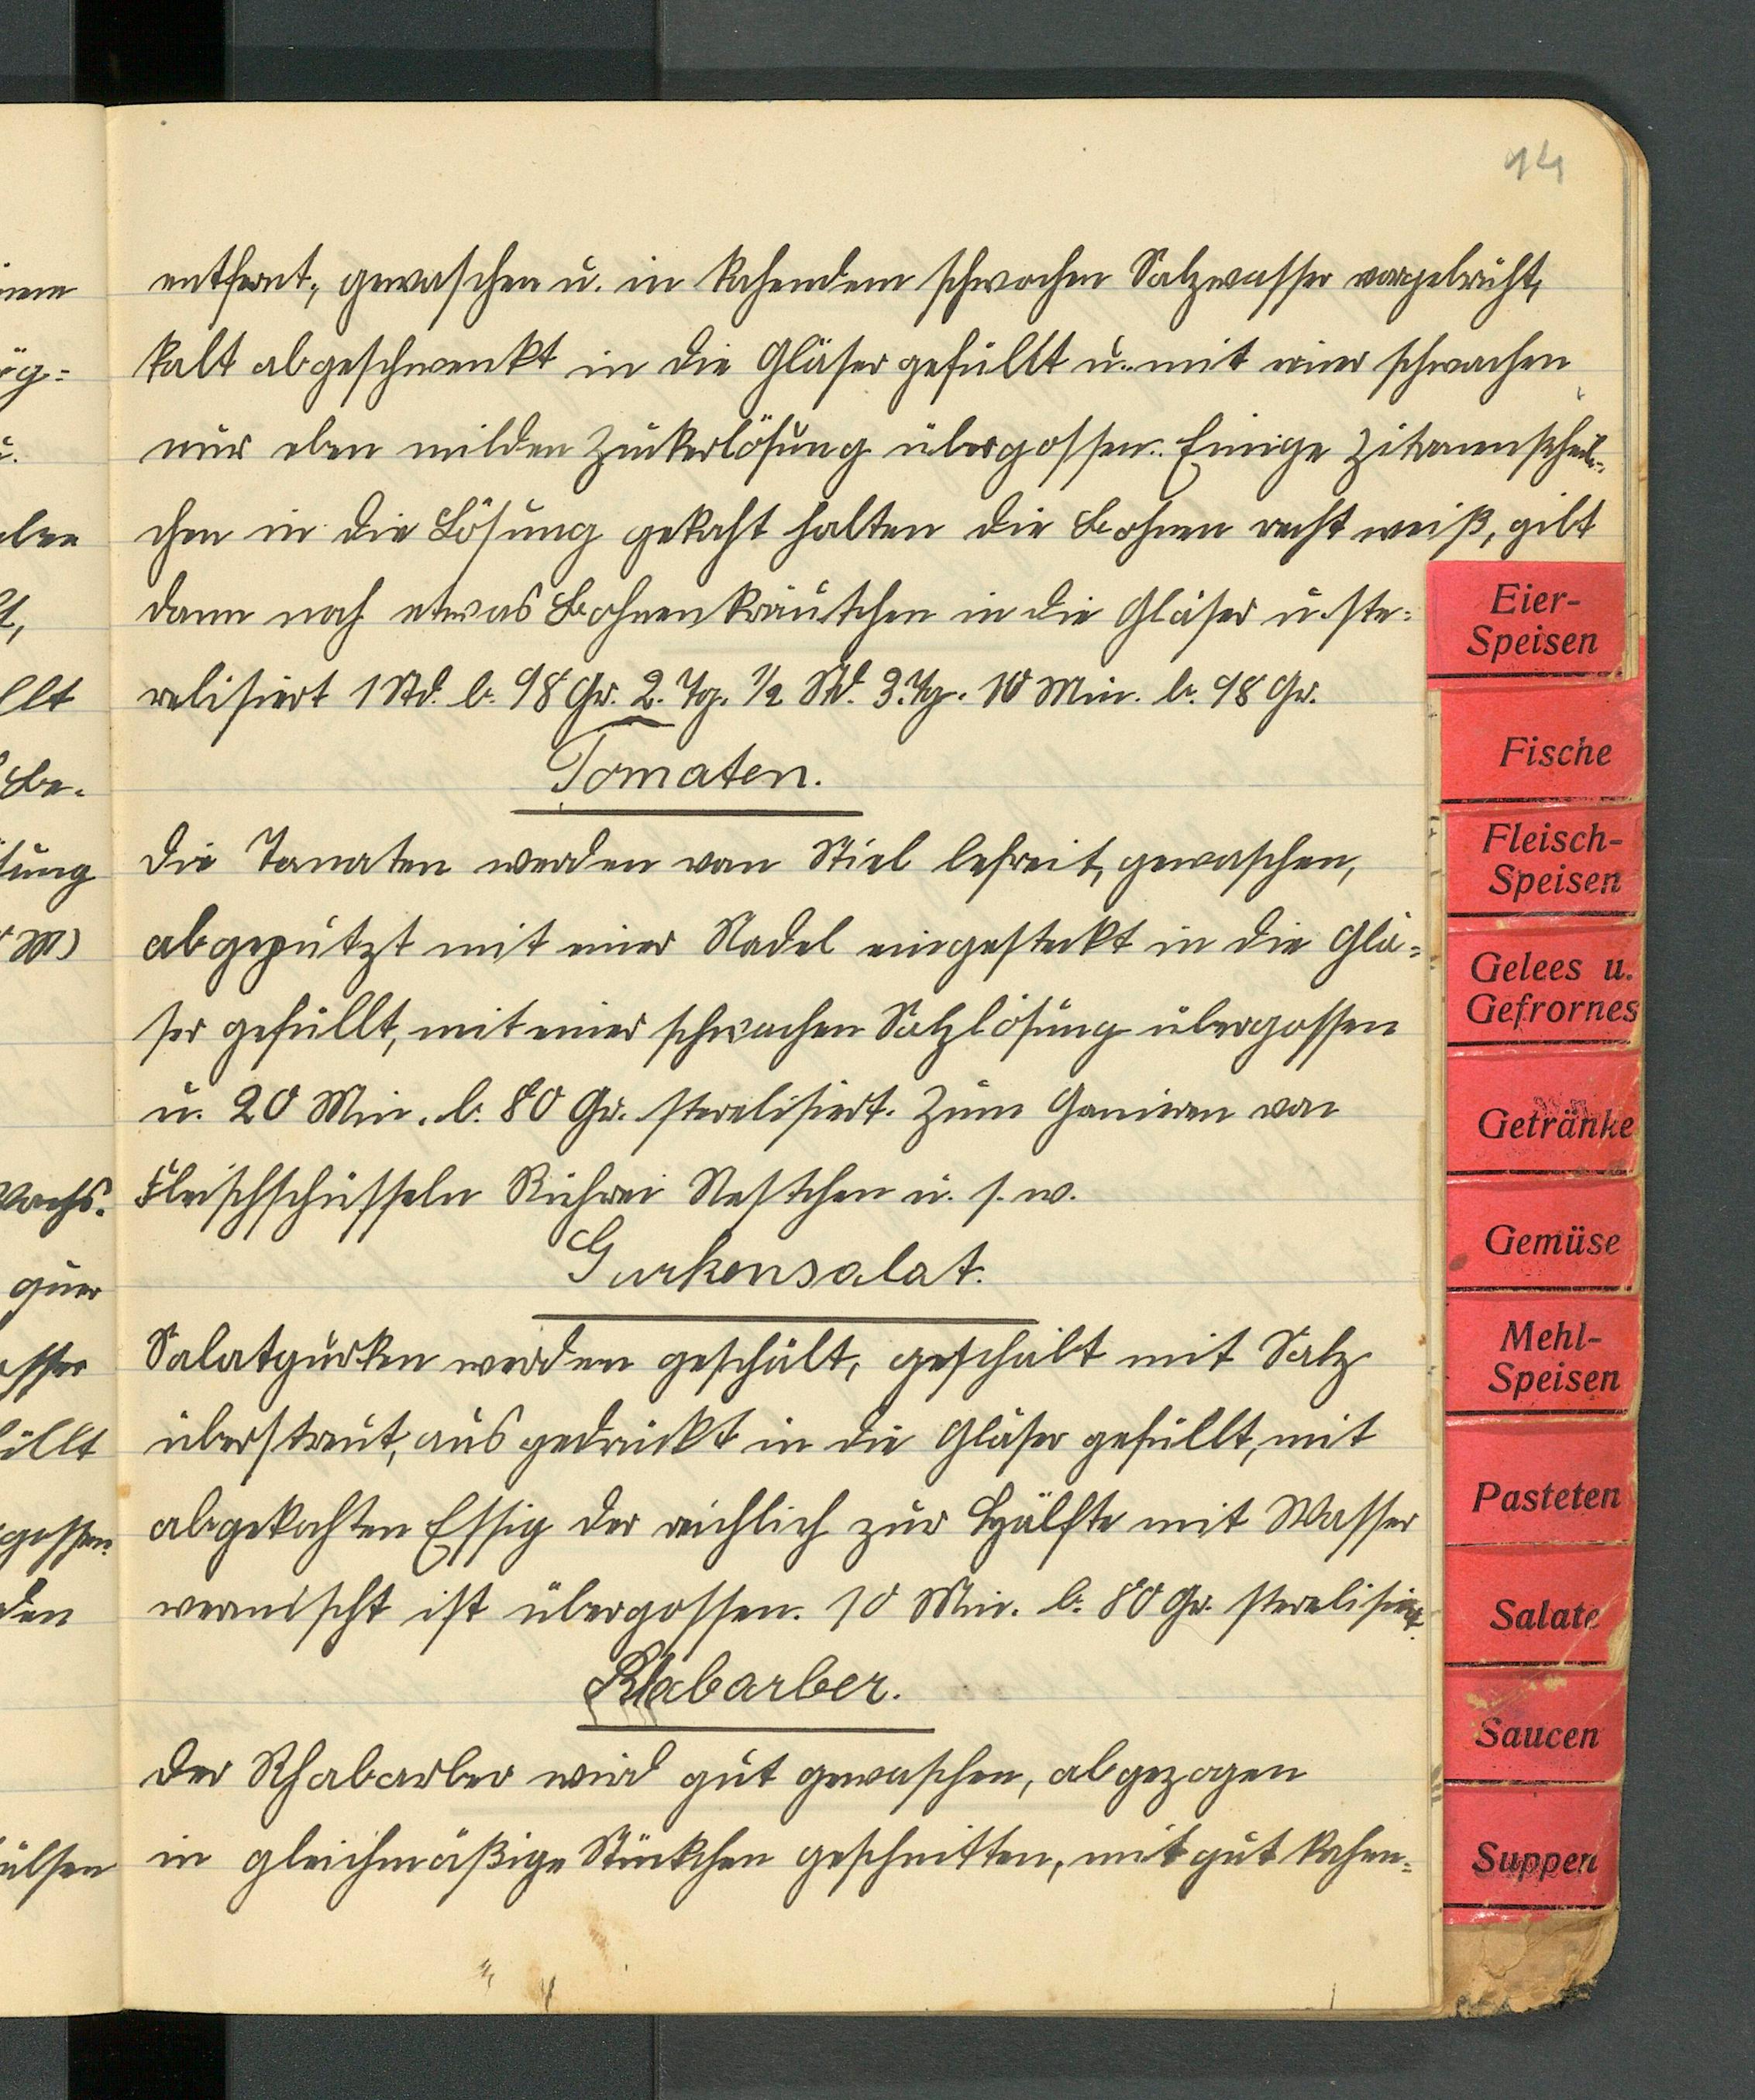 94
entfernt, gewaschen u. in kochendem schwachen Salzwasser vorgebrüht,
kalt abgeschwenkt in die Gläser gefüllt u. mit einer schwachen
nur eben milden Zuckerlösung übergossen. Einige Zitronenscheib-
chen in die Lösung gekocht halten die Bohnen recht weiß, gibt
dann noch etwas Bohnenkräutchen in die Gläser u. ste-
relisiert 1 Std. b. 98 Gr. 2. Tg. ½ Std. 3. Tg. 10 Min. b. 98 Gr.
Tomaten.
Die Tomaten werden vom Stiel befreit, gewaschen,
abgeputzt mit einer Nadel eingesteckt in die Glä-
ser gefüllt, mit einer schwachen Salzlösung übergossen
u. 20 Min. b. 80 Gr. sterelisiert. Zum Garnieren von
Fleischschüsseln Rührei Nestchen u. s. w.
Gurkensalat.
Salatgurken werden geschält, geschält mit Salz
überstreut, ausgedrückt in die Gläser gefüllt, mit
abgekochten Essig der reichlich zur Hälfte mit Wasser
vermischt ist übergossen. 10 Min. b. 80 Gr. sterelisiert.
Rhabarber.
Der Rhabarber wird gut gewaschen, abgezogen
in gleichmäßige Stückchen geschnitten, mit gut kochen-
Eier-
Speisen
Fische
Fleisch-
Speisen
Gelees u.
Gefrornes
Getränke
Gemüse
Mehl-
Speisen
Pasteten
Salate
Saucen
Suppen